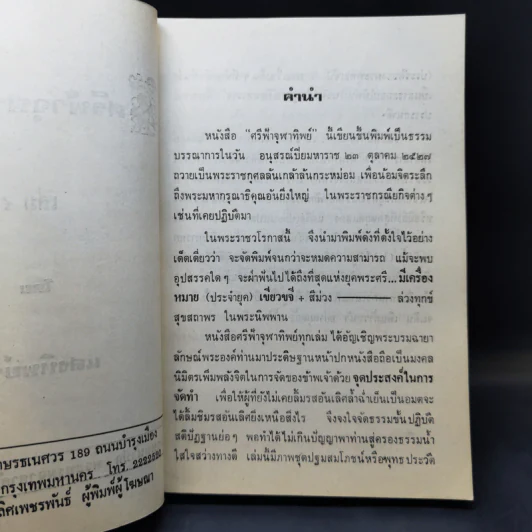 คำนำ
หนังสือ "ศรีฟ้าจุฬาทิพย์" นี้เขียนขึ้นพิมพ์เป็นธรรม
บรรณาการในวัน อนุสรณ์ปิยมหาราช ๒๓ ตุลาคม ๒๕๒๗
ถวายเป็นพระราชกุศลล้นเกล้าล้นกระหม่อม เพื่อน้อมจิตระลึก
ถึงพระมหากรุณาธิคุณอันยิ่งใหญ่ ในพระราชกรณียกิจต่างๆ
เช่นที่เคยปฏิบัติมา
ในพระราชวโรกาสนี้ จึงนำมาพิมพ์ดังที่ตั้งใจไว้อย่าง
เด็ดเดี่ยวว่า จะจัดพิมพ์จนกว่าจะหมดความสามารถ แม้จะพบ
อุปสรรคใดๆ จะฝ่าฟันไปได้ถึงที่สุดแห่งยุคพระศรี...มีเครื่อง
หมาย (ประจำยุค) เขี้ยวขจี + สีม่วง ——— ล่วงทุกข์
สุขสถาพร ในพระนิพพาน
หนังสือศรีฟ้าจุฬาทิพย์ทุกเล่ม ได้อัญเชิญพระบรมฉายา
ลักษณ์พระองค์ท่านมาประดิษฐานหน้าปกหนังสือถือเป็นมงคล
นิมิตรเพิ่มพลังจิตในการจัดของข้าพเจ้าด้วย จุดประสงค์ในการ
จัดทำ เพื่อให้ผู้ที่ยังไม่เคยลิ้มรสอันเลิศล้ำฉ่ำเย็นเป็นอมตะจะ
ได้ลิ้มชิมรสอันเลิศยิ่งเหนือสิ่งไร จึงจงใจจัดธรรมขั้นปฏิบัติ
สติปัฏฐานย่อๆ พอทำได้ไม่เกินปัญญาพาท่านสู่ครองธรรมนำ
ใสใจสว่างทางดี เล่มนี้มีภาพชุดปฐมสมโภชน์หรือพุทธประวัติ
ษรธเนศวร 189 ถนนบำรุงเมือง
กรุงเทพมหานคร โทร.
ลิศเพชรพันธ์ ผู้พิมพ์ผู้โฆษณา